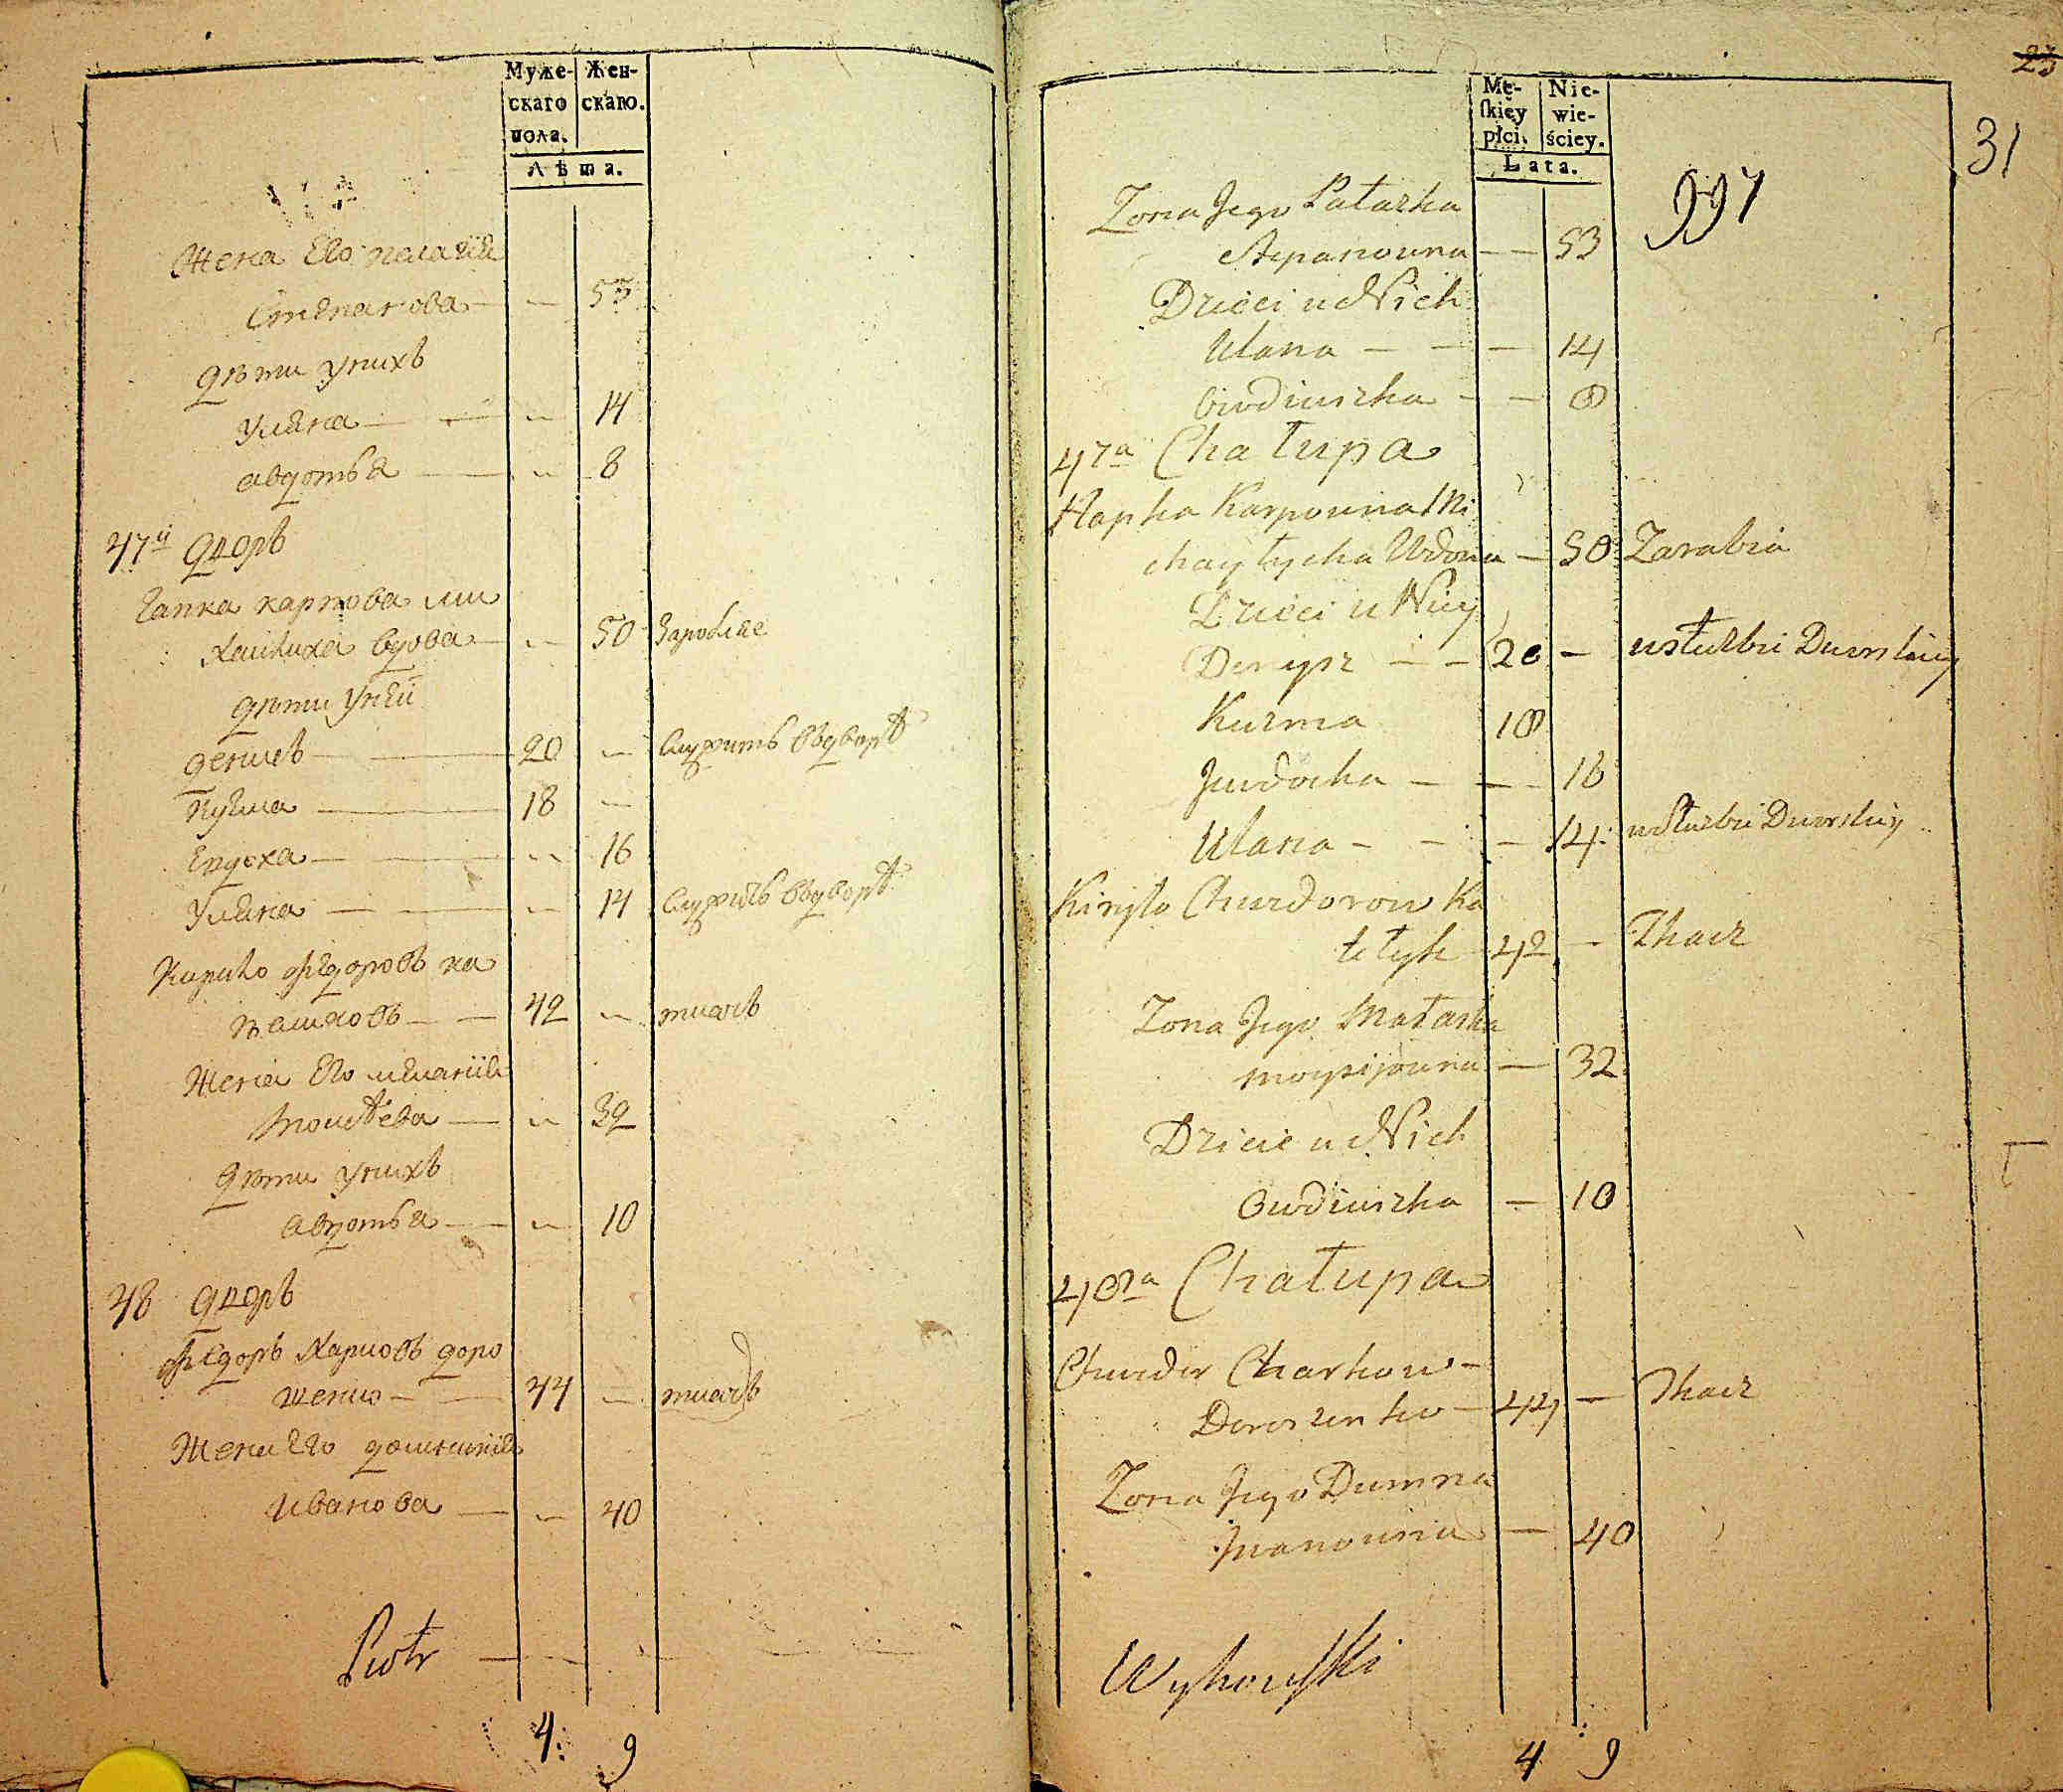 Муже-
скаго
пола.
Жен-
скаго.
Лѣта.
Жена Его пелагія
Степанова — 53
дѣти унихъ
Уляна — 14
авдотья — 8
47й дворъ
Гапка карпова ми
хайлиха вдова — 50 Заробляе
дѣти унеи
денисъ — 20 — служитъ вдворѣ
Кузма — 18 —
Евдоха — 16
Уляна — 14 служитъ вдворѣ
Кирило Ѳедоровъ ка
42 — ткачъ
Жена Его меланія
Моисѣева — 32
дѣти унихъ
авдотья — 10
48 дворъ
Ѳедоръ Харковъ доро
шенко — 44 — ткачъ
Жена Его домникія
Иванова — 40
Piotr
4. 9
23
31
997
Mę-
skiey
płci.
Nie-
wie-
ściey.
Lata.
Zona Jego Pałazka
Stepanowna — 53
Dzieci u Nich
Ulana — 14
Owdiuszka — 8
47a Chałupa
Hapka Karpowna Mi
chayłycha Wdowa — 50 Zarabia
Dzieci u Niey
Denysz — 20 — w służbie Dworskiey
Kuzma 18
Jewdocha — 16
Ulana — 14 w służbie Dworskiey
Kiryło Chwedorow Ka
42 — Tkacz
Zona Jego Małaska
Moysijowna — 32
Dziecie u Nich
Owdiuszka — 10
48a Chałupa
Chwedor Charkow
Doroszenko — 44 — Tkacz
Zona Jego Dumna
Iwanowna — 40
Wyhowski
4 9